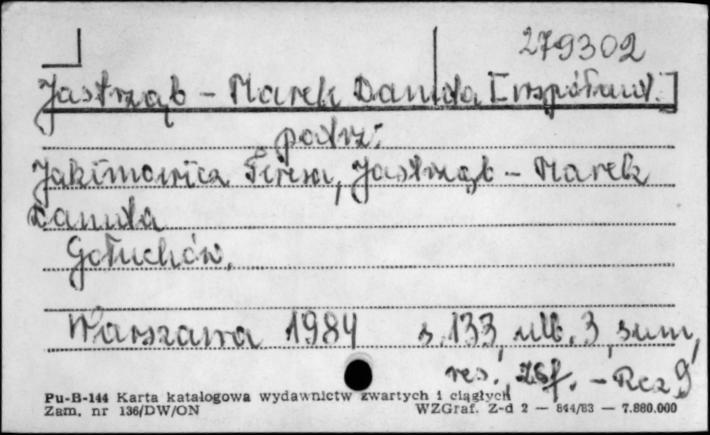 279302
Jastrząb - Marek Danuta [współaut.]
patrz:
Jakimowicz Teresa, Jastrząb - Marek
Danuta
Gołuchów.
Warszawa 1984 s. 133, nlb. 3, sum,
res., - Rez 9
Pu-B-144 Karta katalogowa wydawnictw zwartych i ciągłych
Zam. nr 136/DW/ON WZGraf. Z-d 2 — 844/83 — 7.880.000